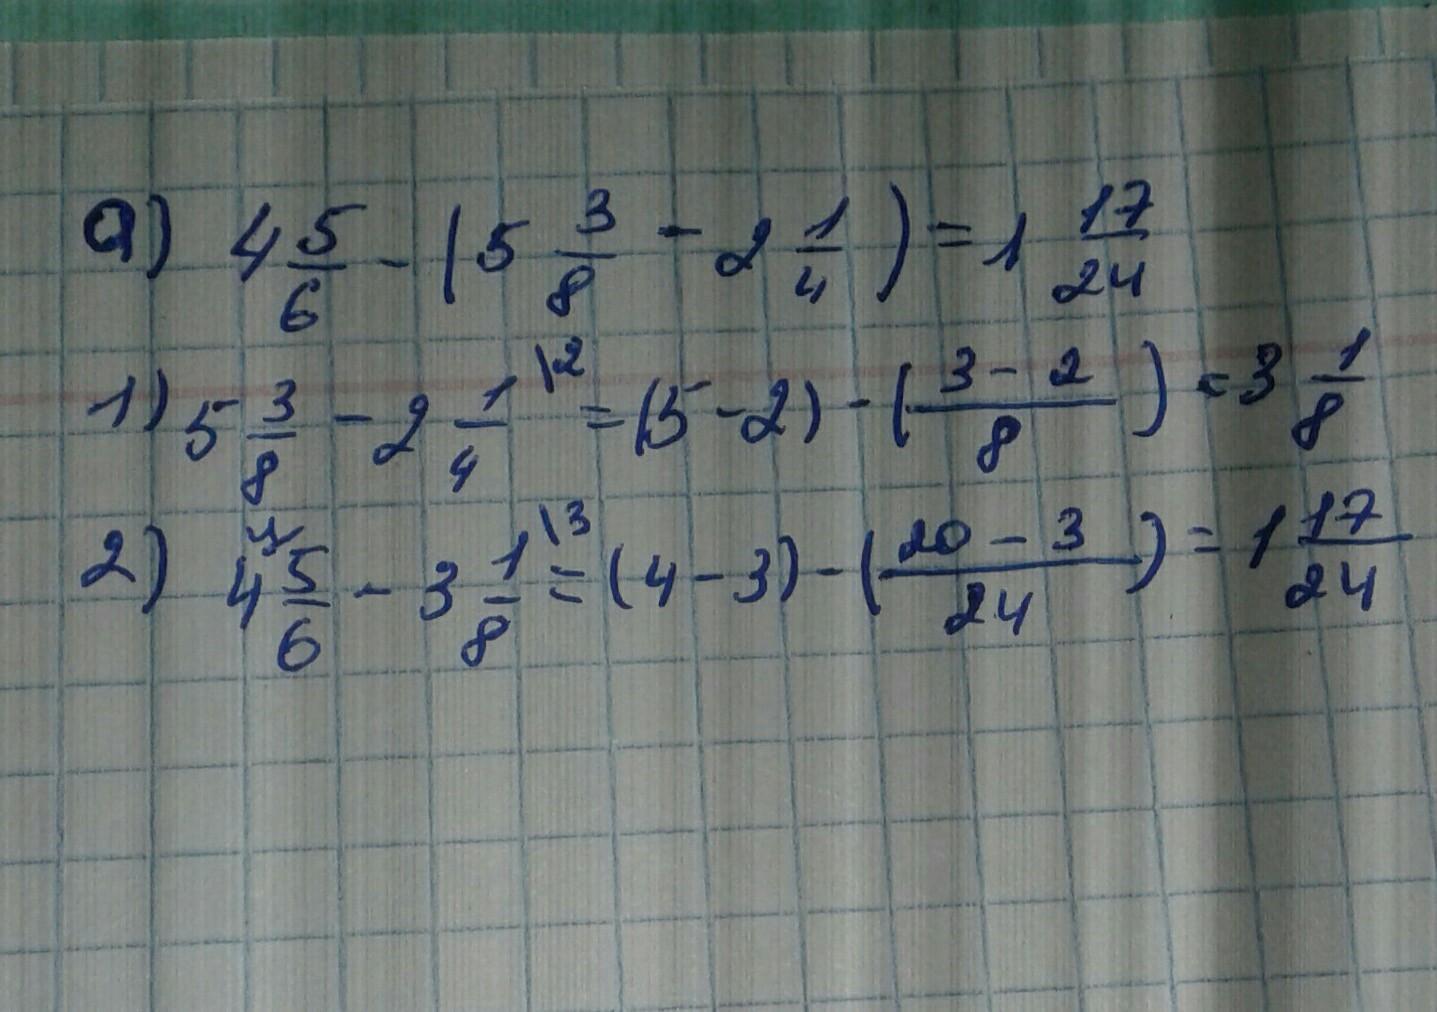 а) 4 5/6 - (5 3/8 - 2 1/4) = 1 17/24
1) 5 3/8 - 2 1/4 \2 = (5 - 2) - (3 - 2/8) = 3 1/8
2) 4 5/6 - 3 1/8 \3 = (4 - 3) - (20 - 3/24) = 1 17/24